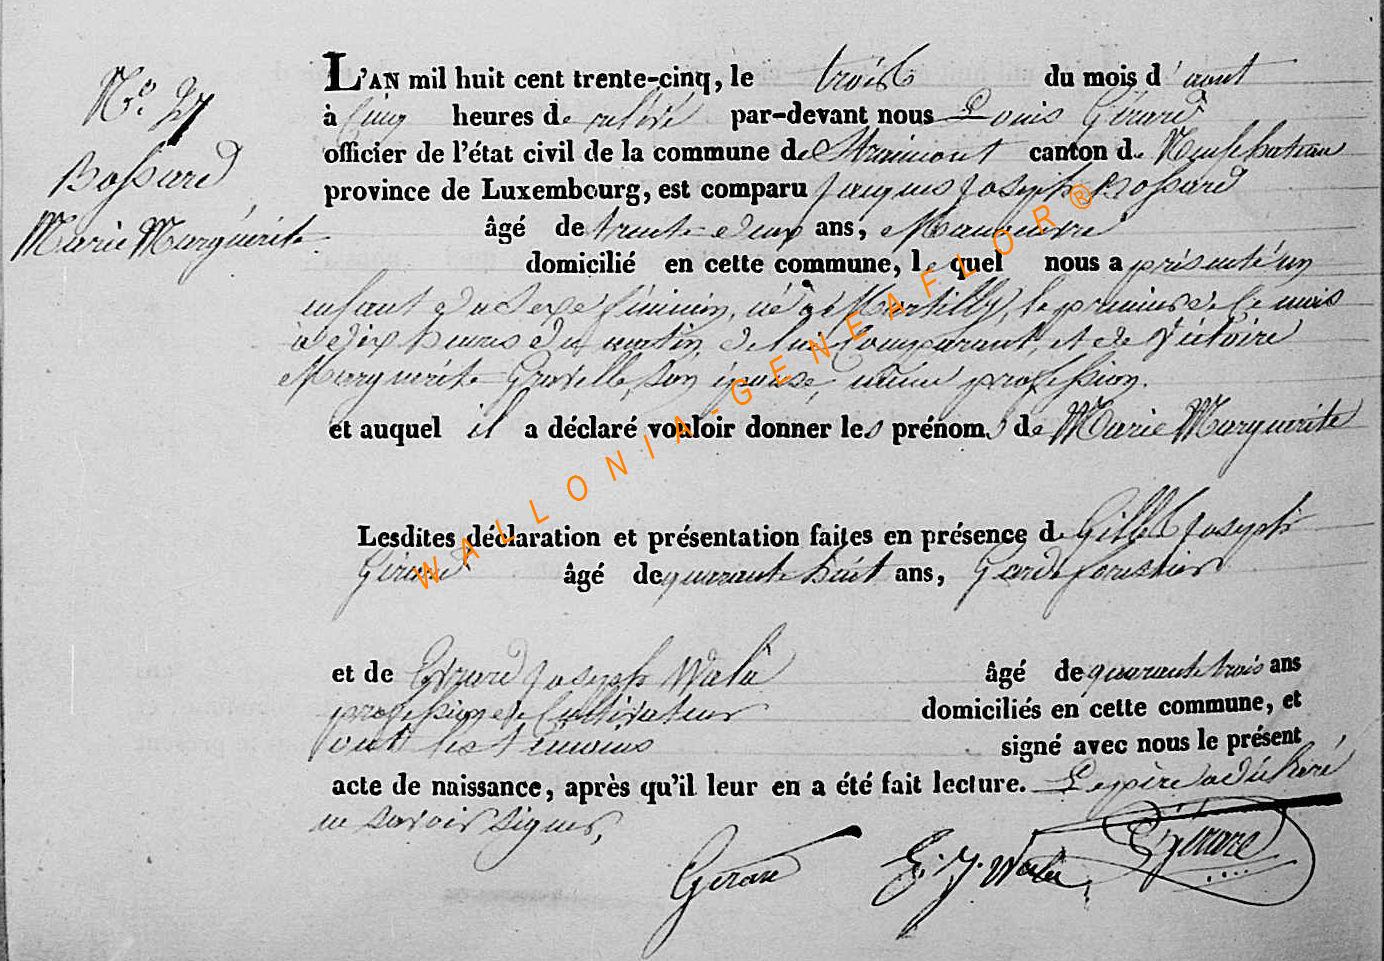 N.° 27
Bossard
Marie Marguerite
L'AN mil huit cent trente-cinq, le trois du mois d'aout
à cinq heures de relevé par-devant nous Louis Gérard
officier de l'état civil de la commune de Straimont canton de Neufchateau
province de Luxembourg, est comparu Jacques Joseph Bossard
âgé de trente deux ans, Manoeuvre
domicilié en cette commune, lequel nous a présenté un
enfant du sexe féminin, né à Martilly, le premier de ce mois
à dix heures du matin, de lui Comparant, et de Victoire
Marguerite Gravelle, son épouse, même profession.
et auquel il a déclaré vouloir donner les prénoms de Marie Marguerite
Lesdites déclaration et présentation faites en présence de Gilles Joseph
Gérard âgé de quarante huit ans, Garde forestier
et de Evrard Joseph Wala âgé de quarante trois ans
profession de Cultivateur domiciliés en cette commune, et
ont les témoins signé avec nous le présent
acte de naissance, après qu'il leur en a été fait lecture. Le père a déclaré
ne savoir signer,
Gerard E. J. Wala L Gérard
WALLONIA-GENEAFLOR®